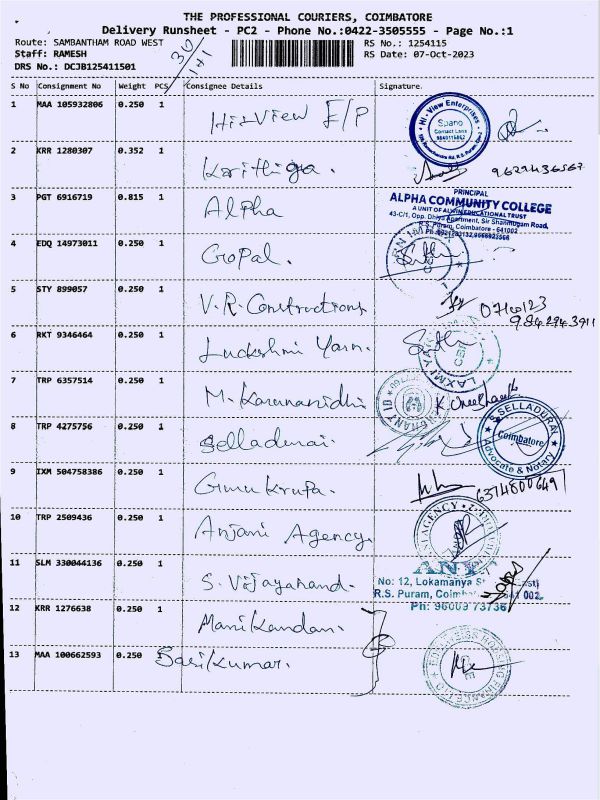 THE PROFESSIONAL COURIERS, COIMBATORE
Delivery Runsheet - PC2 - Phone No.:0422-3505555 - Page No.:1
Route: SAMBANTHAM ROAD WEST
RS No.: 1254115
Staff: RAMESH
RS Date: 07-Oct-2023
DRS No.: DCJB125411501
S No Consignment No Weight PCS Consignee Details Signature.
1 MAA 105932806 0.250 1 Hi-View E/P
Hi - View Enterprises
Spano
Contact Lens
2 KRR 1280307 0.352 1 Karithiga.
9629436567
3 PGT 6916719 0.815 1 Alpha
PRINCIPAL
ALPHA COMMUNITY COLLEGE
A UNIT OF ALWIN EDUCATIONAL TRUST
43-C/1, Opp. Dhiya Apartment, Sir Shanmugam Road,
R.S. Puram, Coimbatore - 641002
4 EDQ 14973011 0.250 1 Gopal.
5 STY 899057 0.250 1 V.R. Constructions
07/10/23
9842943911
6 RKT 9346464 0.250 1 Luckshmi Yarn.
7 TRP 6357514 0.250 1 M. Karunanidhi
8 TRP 4275756 0.250 1 Selladurai.
S. SELLADURAI
Coimbatore
Advocate & Notary
9 IXM 504758386 0.250 1 Guru Krupa.
6374800649
10 TRP 2509436 0.250 1 Anjani Agency.
AGENCY
11 SLM 330044136 0.250 1 S. Vijayanand.
No: 12, Lokamanya
R.S. Puram,
Ph: 96003 73736
12 KRR 1276638 0.250 1 Manikandan.
13 MAA 100662593 0.250 Sasikumar.